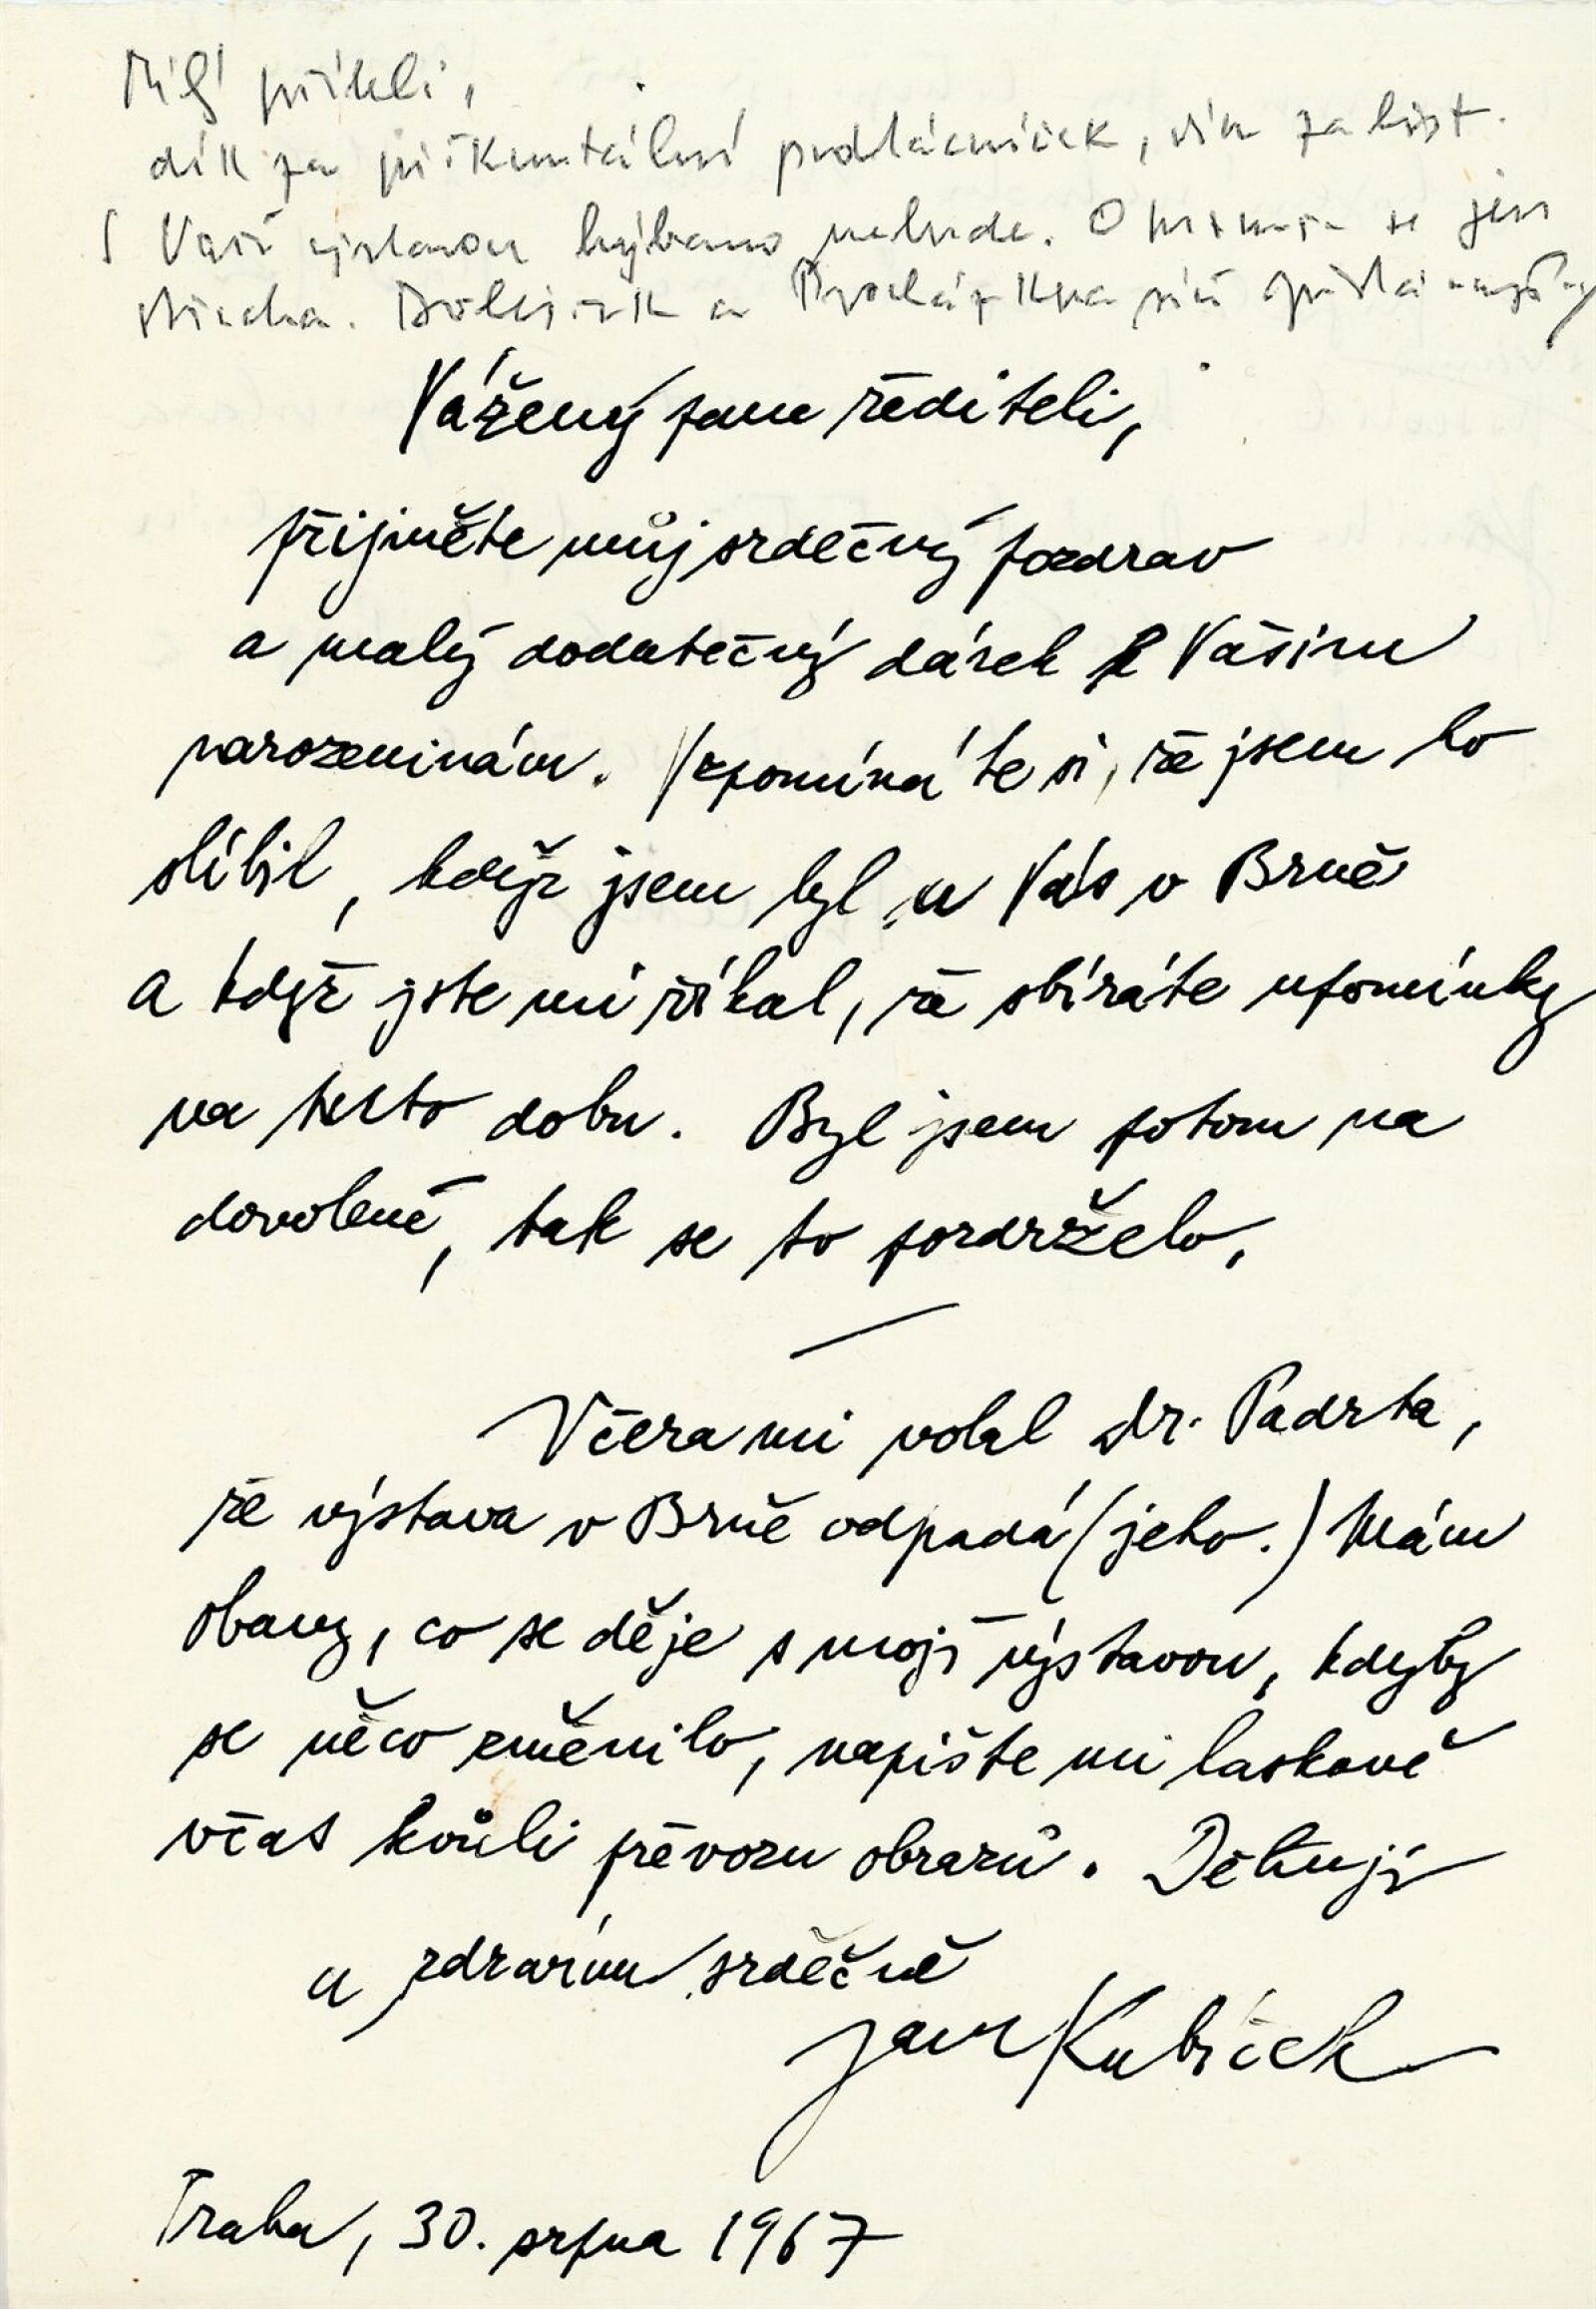 Milý příteli,
dík za pozdrav, dík za list.
S Vaší výstavou hýbáno nebude. se jen
střecha. a
Vážený pane řediteli,
přijměte můj srdečný pozdrav
a malý dodatečný dárek k Vašim
narozeninám. Vzpomínáte si, že jsem to
slíbil, když jsem byl u Vás v Brně
a když jste mi říkal, že sbíráte upomínky
na tuto dobu. Byl jsem potom na
dovolené, tak se to pozdrželo.
Včera mi volal dr. Padrta,
že výstava v Brně odpadá (jeho.) Mám
obavy, co se děje s mojí výstavou, kdyby
se něco změnilo, napište mi laskavě
včas kvůli převozu obrazů. Děkuji
a zdravím srdečně
Jan Kubíček
Praha, 30. srpna 1967